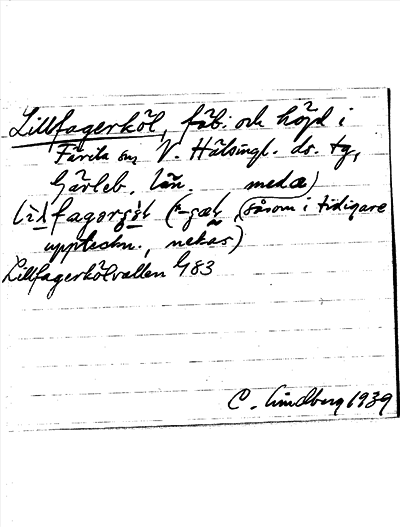 Lillfagerköl, fäb. och höjd i
Färila sn V. Hälsingl. ds. tg,
Gävleb. län. med æ)
(såsom i tidigare
uppteckn., nekas)
Lillfagerkölvallen G 83
C. Lindberg 1939